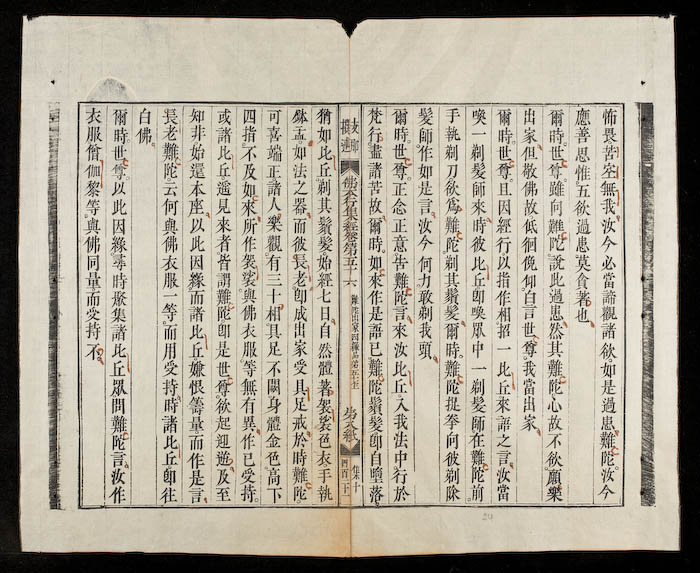 怖畏苦空無我汝今必當諦觀諸欲如是過患難陀汝今
應善思惟五欲過患莫貪著也
爾時世尊雖向難陀說此過患然其難陀心故不欲願樂
出家但敬佛故低徊俛仰白言世尊我當出家
爾時世尊且因經行以指作相招一比丘來語之言汝當
喚一剃髮師來時彼比丘卽喚眾中一剃髮師在難陀前
手執剃刀欲爲難陀剃其鬚髮爾時難陀捉拳向彼剃除
髮師作如是言汝今何力敢剃我頭
爾時世尊正念正意告難陀言來汝比丘入我法中行於
梵行盡諸苦故爾時如來作是語已難陀鬚髮卽自墮落
支那
撰述
佛本行集經卷第五十六
難陀出家因緣品第五十七
集十
猶如比丘剃其鬚髮始經七日自然體著袈裟色衣手執
鉢盂如法之器而彼長老卽成出家受具足戒於時難陀
可喜端正諸人樂觀有三十相具足不闕身體金色高下
四指不及如來所作袈裟與佛衣服等無有異作已受持
或諸比丘遙見來者皆謂難陀卽是世尊欲起迎遊及至
知非始還本座以此因緣而諸比丘嫌恨籌量而作是言
長老難陀云何與佛衣服一等而用受持時諸比丘卽往
白佛
爾時世尊以此因緣尋時聚集諸比丘眾問難陀言汝作
衣服僧伽黎等與佛同量而受持不
24